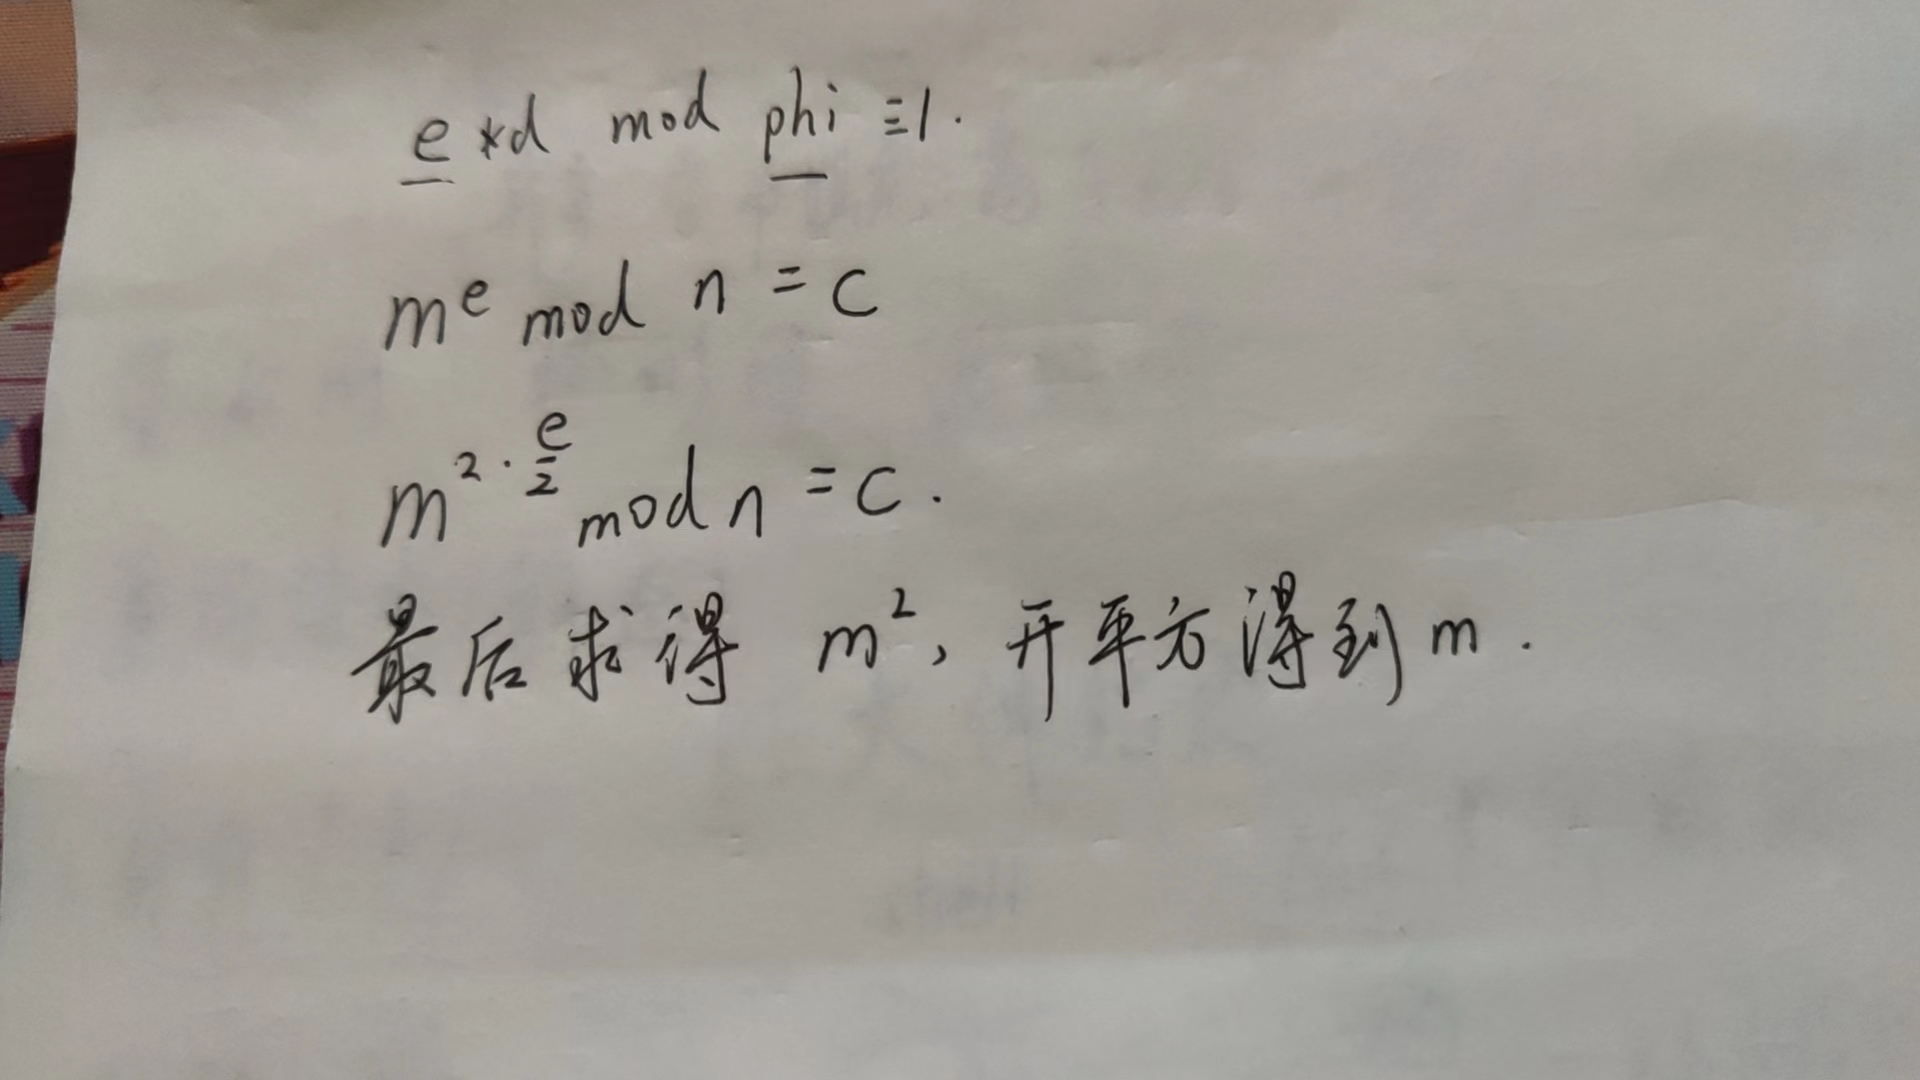 e*d mod phi ≡1.
m^e mod n = c
m^{2·\frac{e}{2}} mod n = c.
最后求得 m²，开平方得到 m.